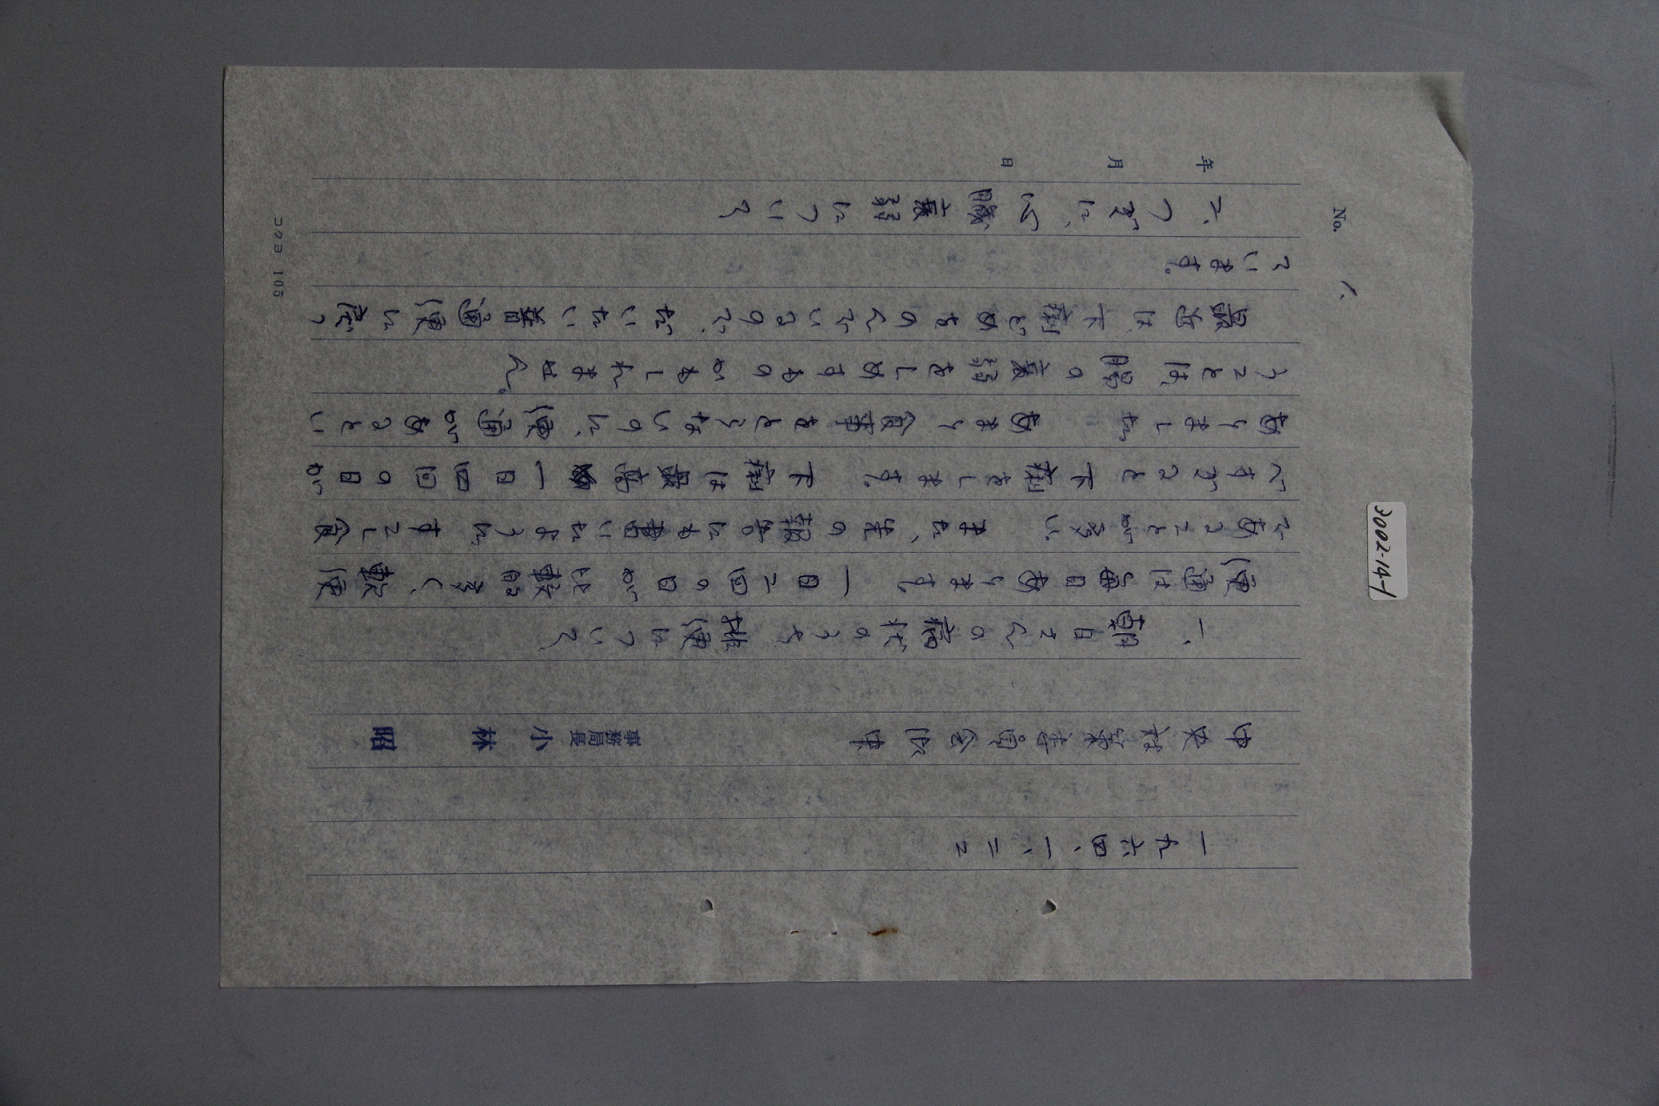 No. 1.
年 月 日
一、朝日さんの病状のうち、排便について、
便通は毎日あります。一日二回の日が比較的多く、軟便
であることが多い。また、先の報告にも書いたように、すこし食
べすぎると下痢をします。下痢は最高一日四回の日が
ありました。あまり食事をとらないのに、便通があるとい
うことは、腸の衰弱をしめすものかもしれません。
最近は下痢どめをのんでいるので、だいたい普通便に
ています。
二、つぎに、心臓衰弱について
一九六四、一、
中央
事務局長 小林 昭
コクヨ 105
3002-14-1